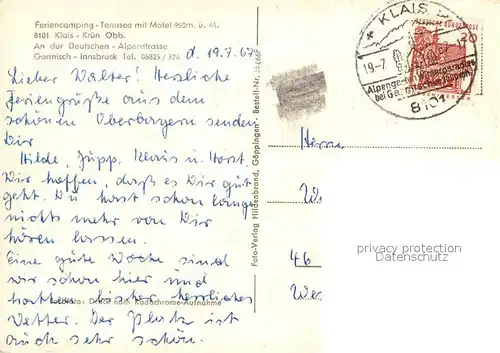 Feriencamping - Tennsee mit Motel 950m. ü. M.
8101 Klais - Krün Obb.
An der Deutschen - Alpenstrasse
Garmisch - Innsbruck Tel. 08825/
d. 19.7.67
Lieber Walter! Herzliche
Feriengrüße aus dem
schönen Oberbayern senden
Dir
Hilde, Jupp, Klaus u. Horst.
Wir hoffen, daß es Dir gut
geht. Du hast schon lange
nichts mehr von Dir
hören lassen.
Eine gute Woche sind
wir schon hier und
hatten bisher herrliches
nach Kodachrome-Aufnahme
Wetter. Der Platz ist
auch sehr schön.
Foto-Verlag Hildenbrand, Göppingen Bestell-Nr.
KLAIS
DEUTSCHE BUNDESPOST
20
19.-7.
bei Garmisch
8101
Herrn
46
privacy protection
Datenschutz